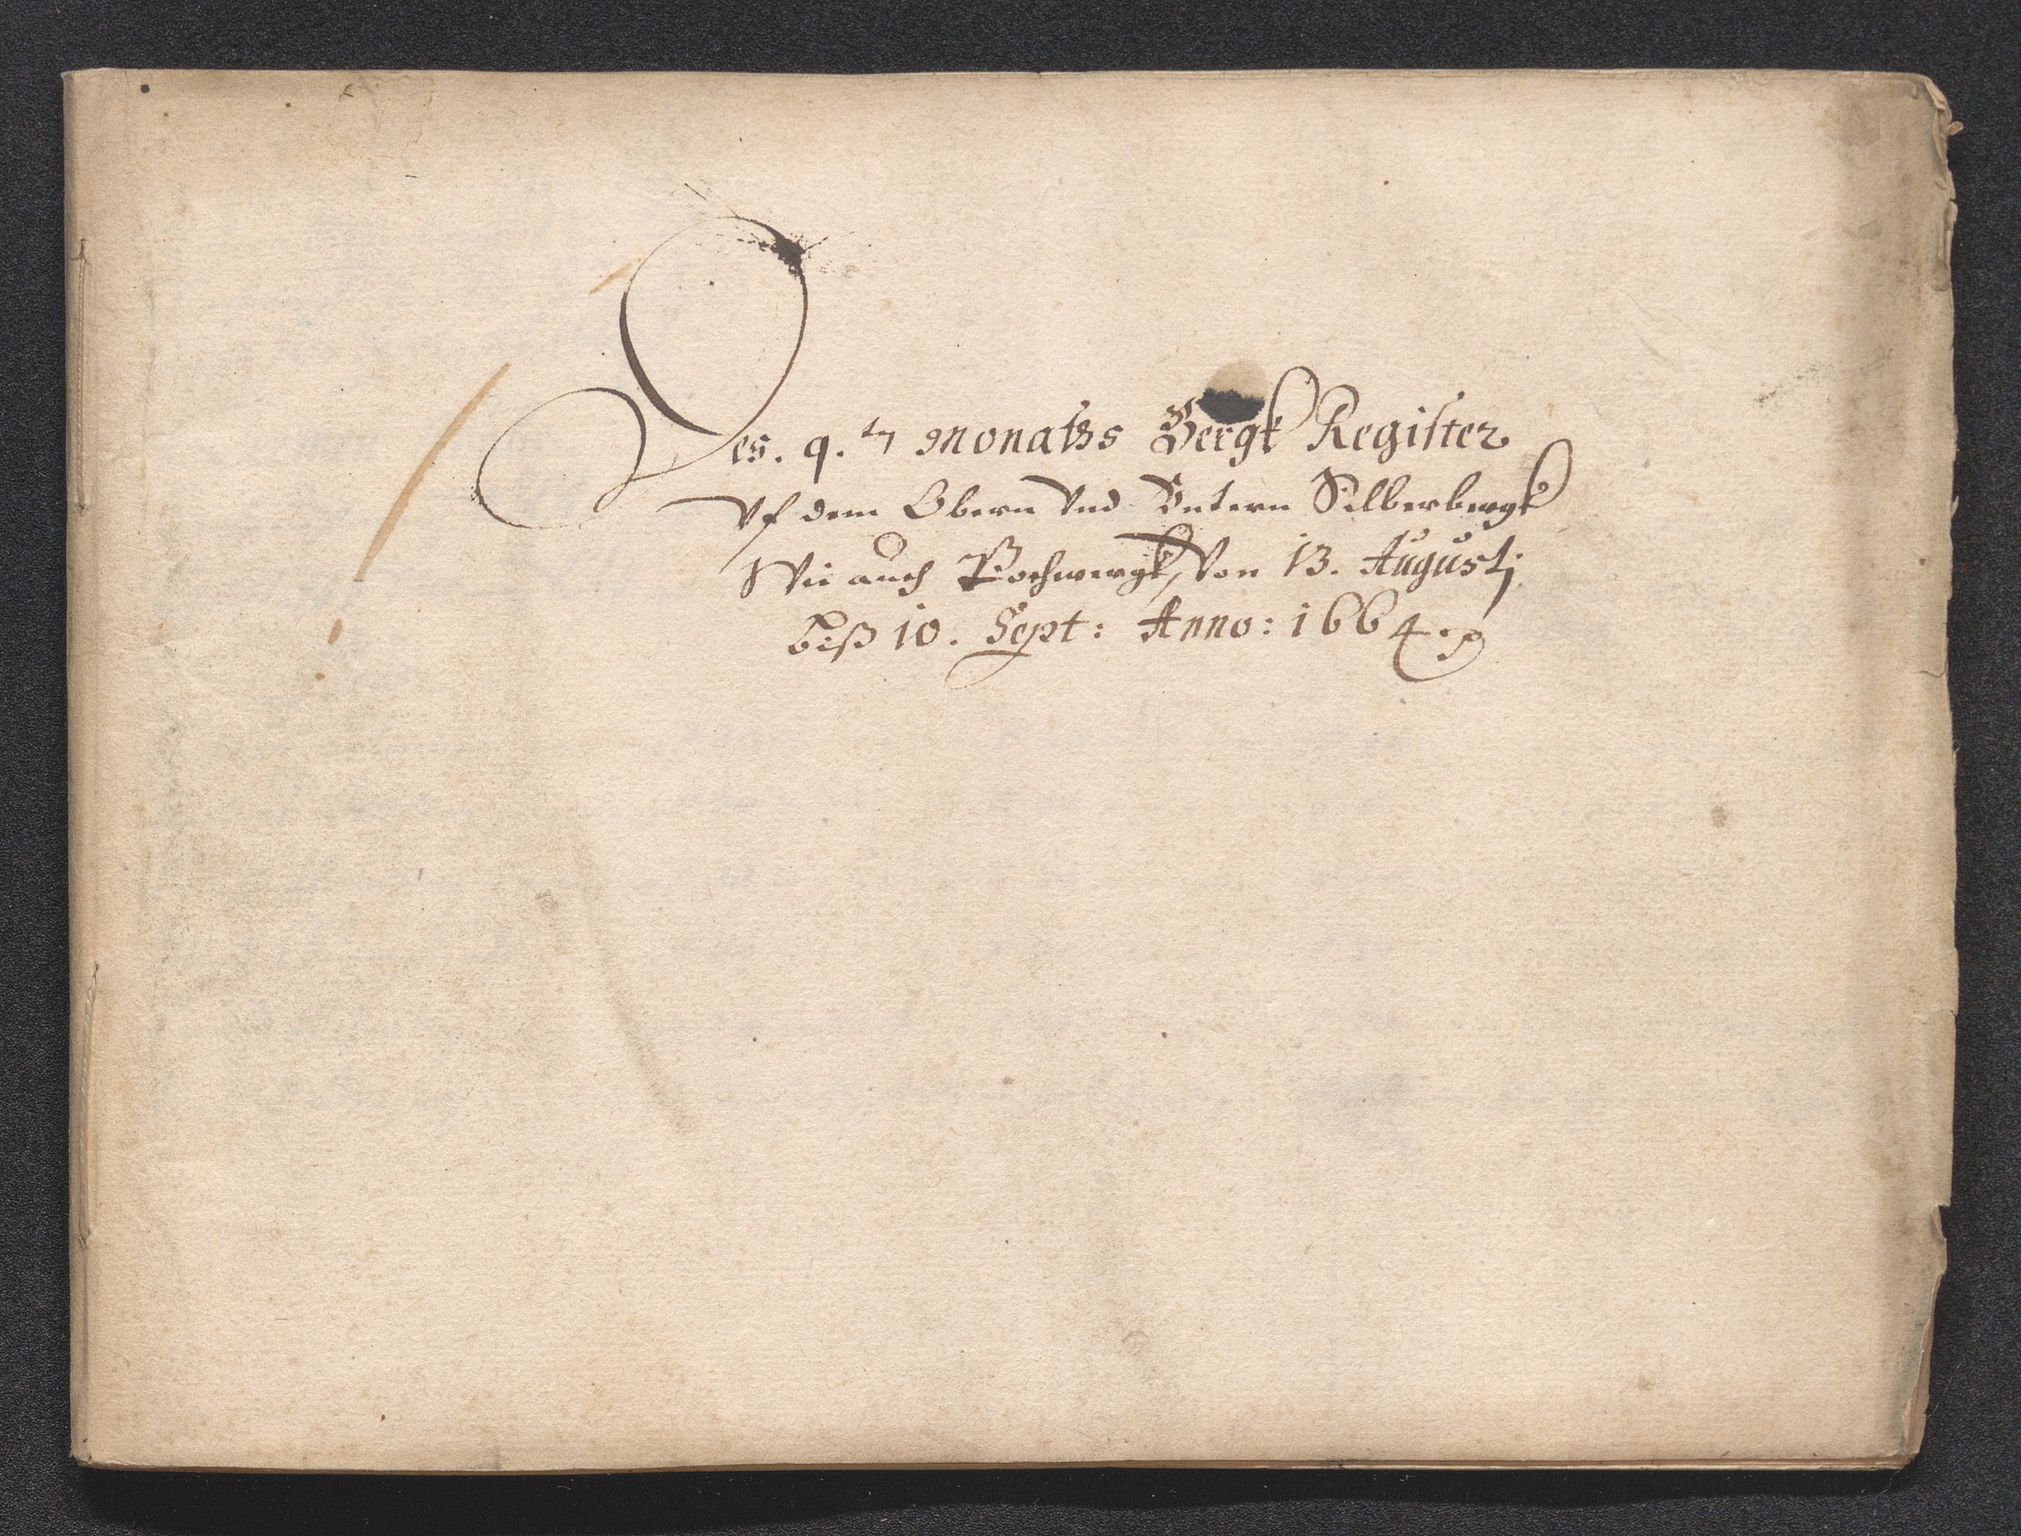 Des. 9.ten Monatßs Bergk Register
Vf dem Obern Vnd Vntern Silberbergk
Wie auch Pochwergk, Von 13. Augustj
biß 10. Sept: Anno: 1664.